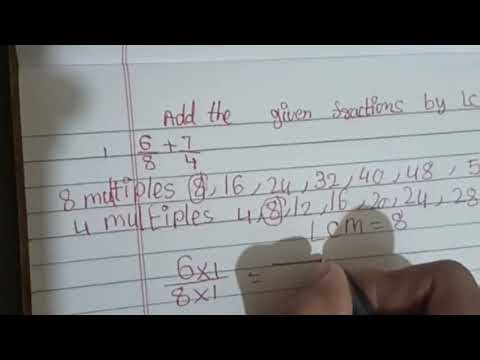 Add the given fractions by LC
1 6/8 + 7/4
8 multiples 8, 16, 24, 32, 40, 48, 5
4 multiples 4, 8, 12, 16, 20, 24, 28
LCM = 8
6×1/8×1 =